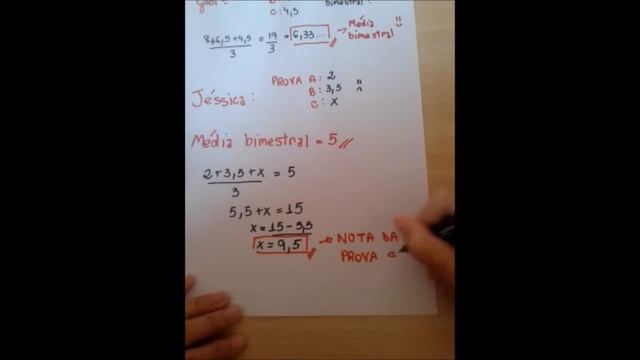 Gabi:
C: 4,5
bimestral:
8+6,5+4,5 = 19 = 6,33... → Média
3 3 bimestral
PROVA A: 2
Jéssica: B: 3,5
C: x
Média bimestral = 5
2+3,5+x = 5
3
5,5+x = 15
x = 15-5,5
x = 9,5 → NOTA DA
PROVA C